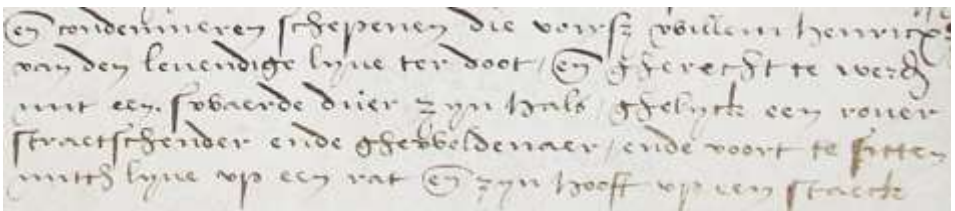 en condemneren schepenen die voirsz willem henricx
van den levendige lyve ter doot / en gherecht te werden
mit een swaerde duer zyn hals / ghelyck een rover
straetschender ende gheweldenaer / ende voort te sitten
mitten lyve op een rat en zyn hooft op een staeck